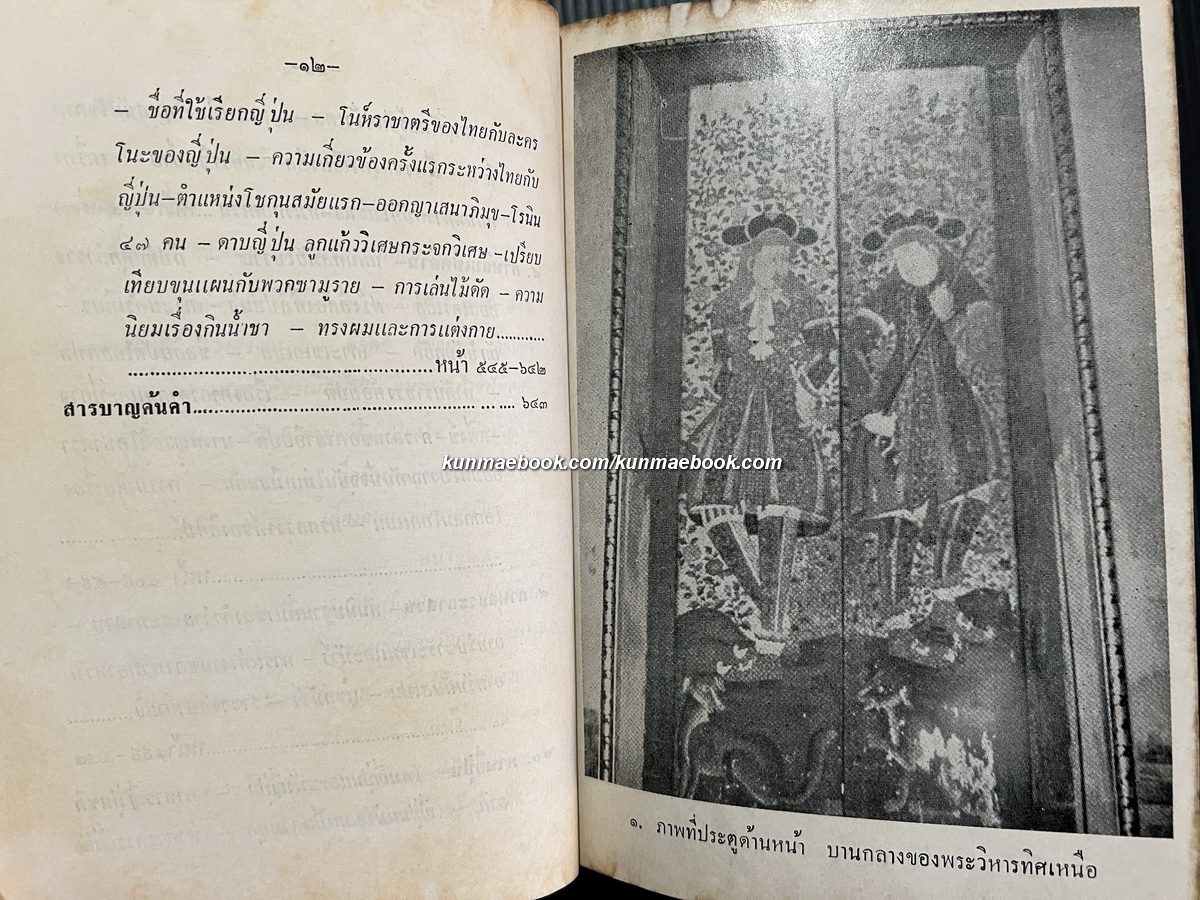 –๑๒–
– ชื่อที่ใช้เรียกญี่ปุ่น – โนห์ราชาตรีของไทยกับละคร
โนะของญี่ปุ่น – ความเกี่ยวข้องครั้งแรกระหว่างไทยกับ
ญี่ปุ่น–ตำแหน่งโชกุนสมัยแรก–ออกญาเสนาภิมุข–โรนิน
๔๗ คน – ดาบญี่ปุ่น ลูกแก้ววิเศษกระจกวิเศษ –เปรียบ
เทียบขุนแผนกับพวกซามูราย – การเล่นไม้ดัด – ความ
นิยมเรื่องกินน้ำชา – ทรงผมและการแต่งกาย...........
................................................หน้า ๕๔๕–๖๔๒
สารบาญค้นคำ................................................ ๖๔๓
kunmaebook.com/kunmaebook.com
๑. ภาพที่ประตูด้านหน้า บานกลางของพระวิหารทิศเหนือ